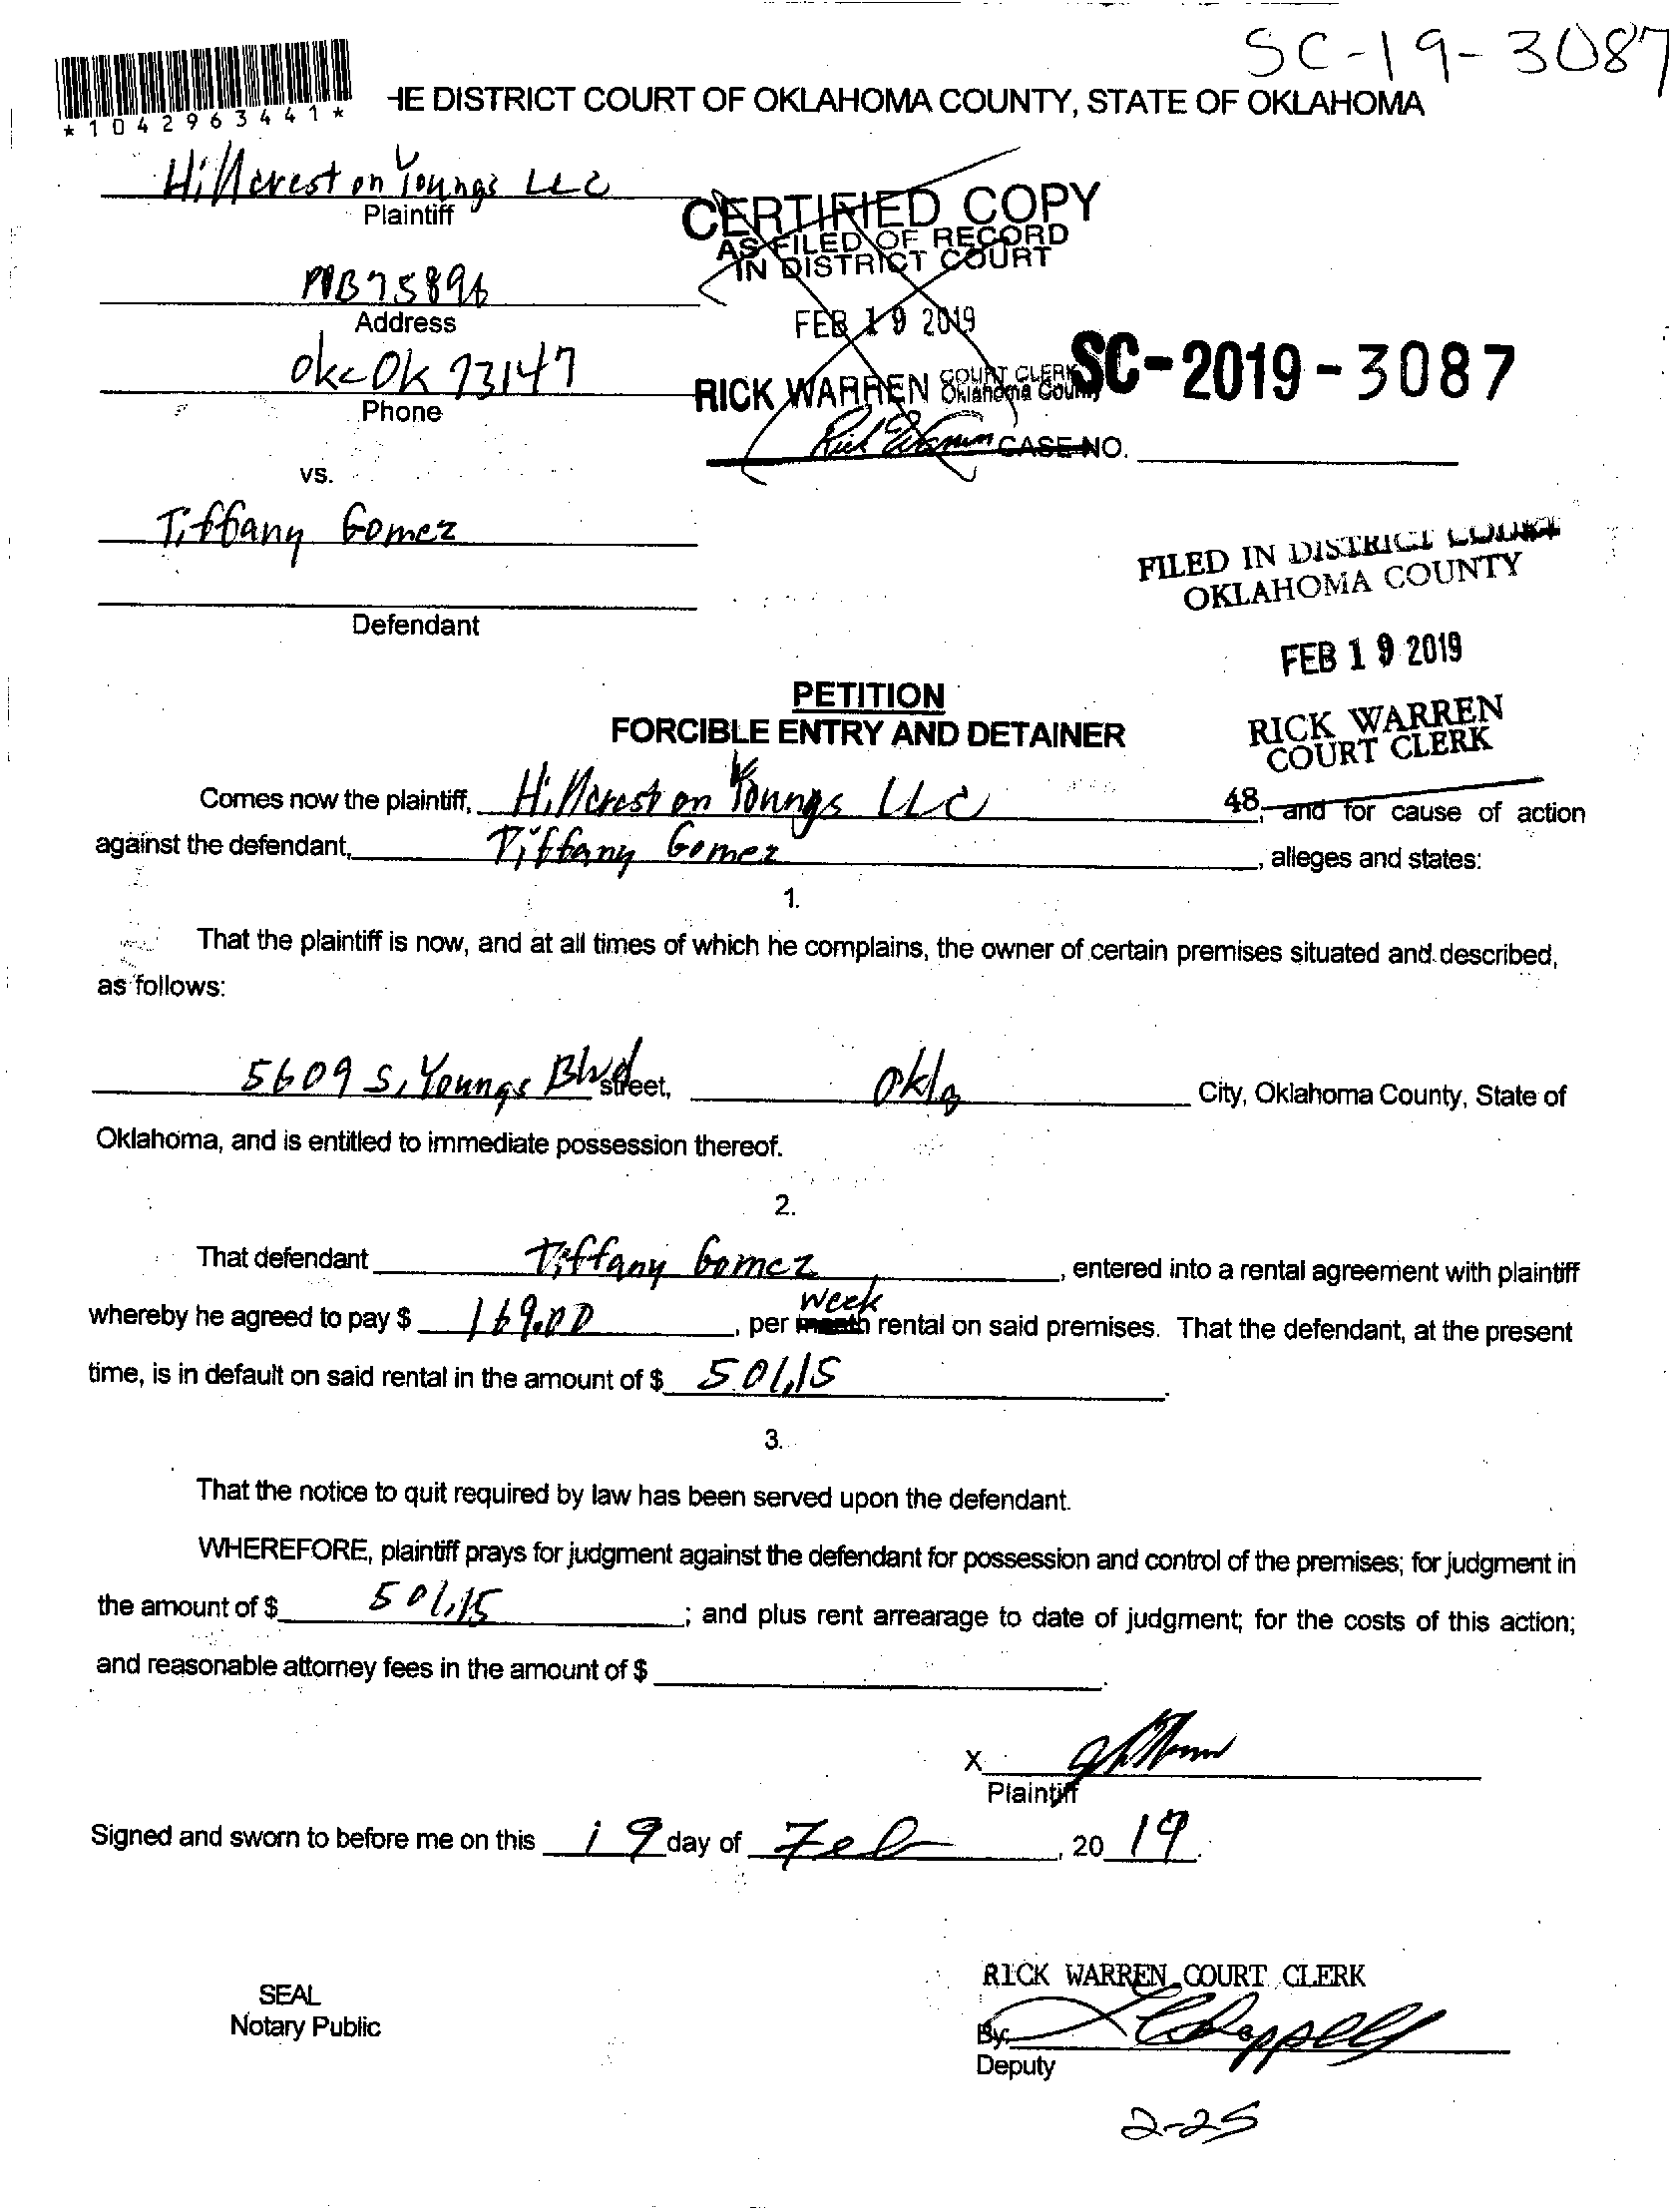 SC-19-3087
*1042963441*
HE DISTRICT COURT OF OKLAHOMA COUNTY, STATE OF OKLAHOMA
Hillcrest on Youngs LLC
Plaintiff
CERTIFIED COPY
AS FILED OF RECORD
IN DISTRICT COURT
FEB 19 2019
RICK WARREN COURT CLERK
Oklahoma County
Rick Warren
POB 75896
Address
OKC OK 73147
Phone
SC-2019-3087
CASE NO.
vs.
Tiffany Gomez
Defendant
FILED IN DISTRICT COURT
OKLAHOMA COUNTY
FEB 19 2019
RICK WARREN
COURT CLERK
48
PETITION
FORCIBLE ENTRY AND DETAINER
Comes now the plaintiff, Hillcrest on Youngs LLC, and for cause of action
against the defendant, Tiffany Gomez, alleges and states:
1.
That the plaintiff is now, and at all times of which he complains, the owner of certain premises situated and described,
as follows:
5609 S. Youngs Blvd street, Okla City, Oklahoma County, State of
Oklahoma, and is entitled to immediate possession thereof.
2.
That defendant Tiffany Gomez, entered into a rental agreement with plaintiff
week
whereby he agreed to pay $ 169.00, per month rental on said premises. That the defendant, at the present
time, is in default on said rental in the amount of $ 501.15.
3.
That the notice to quit required by law has been served upon the defendant.
WHEREFORE, plaintiff prays for judgment against the defendant for possession and control of the premises; for judgment in
the amount of $ 501.15; and plus rent arrearage to date of judgment; for the costs of this action;
and reasonable attorney fees in the amount of $ .
X
Plaintiff
Signed and sworn to before me on this 19 day of Feb, 2019.
SEAL
Notary Public
RICK WARREN COURT CLERK
By:
Deputy
2-25